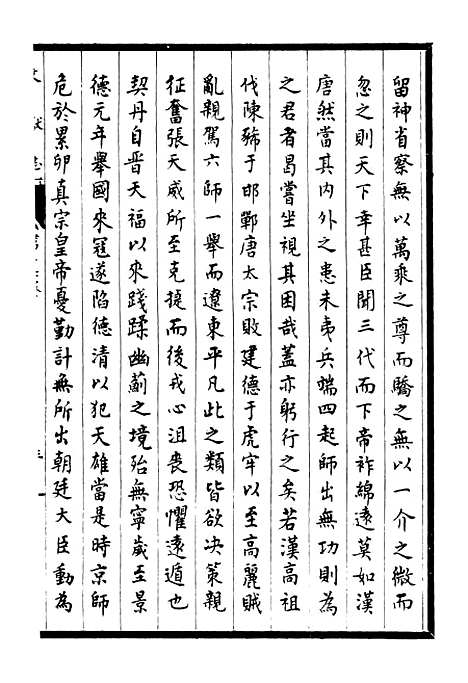 留神省察無以萬乘之尊而驕之無以一介之微而
忽之則天下幸甚臣聞三代而下帝祚綿遠莫如漢
唐然當其内外之患未夷兵端四起師出無功則為
之君者曷嘗坐視其困哉蓋亦躬行之矣若漢高祖
伐陳豨于邯鄲唐太宗敗建德于虎牢以至高麗賊
亂親駕六師一舉而遼東平凡此之類皆欲决策親
征奮張天威所至克捷而後戎心沮喪恐懼遠遁也
契丹自晉天福以來踐蹂幽薊之境殆無寧歲至景
德元年舉國來冦遂陷德清以犯天雄當是時京師
危於累卵真宗皇帝憂勤計無所出朝廷大臣動為